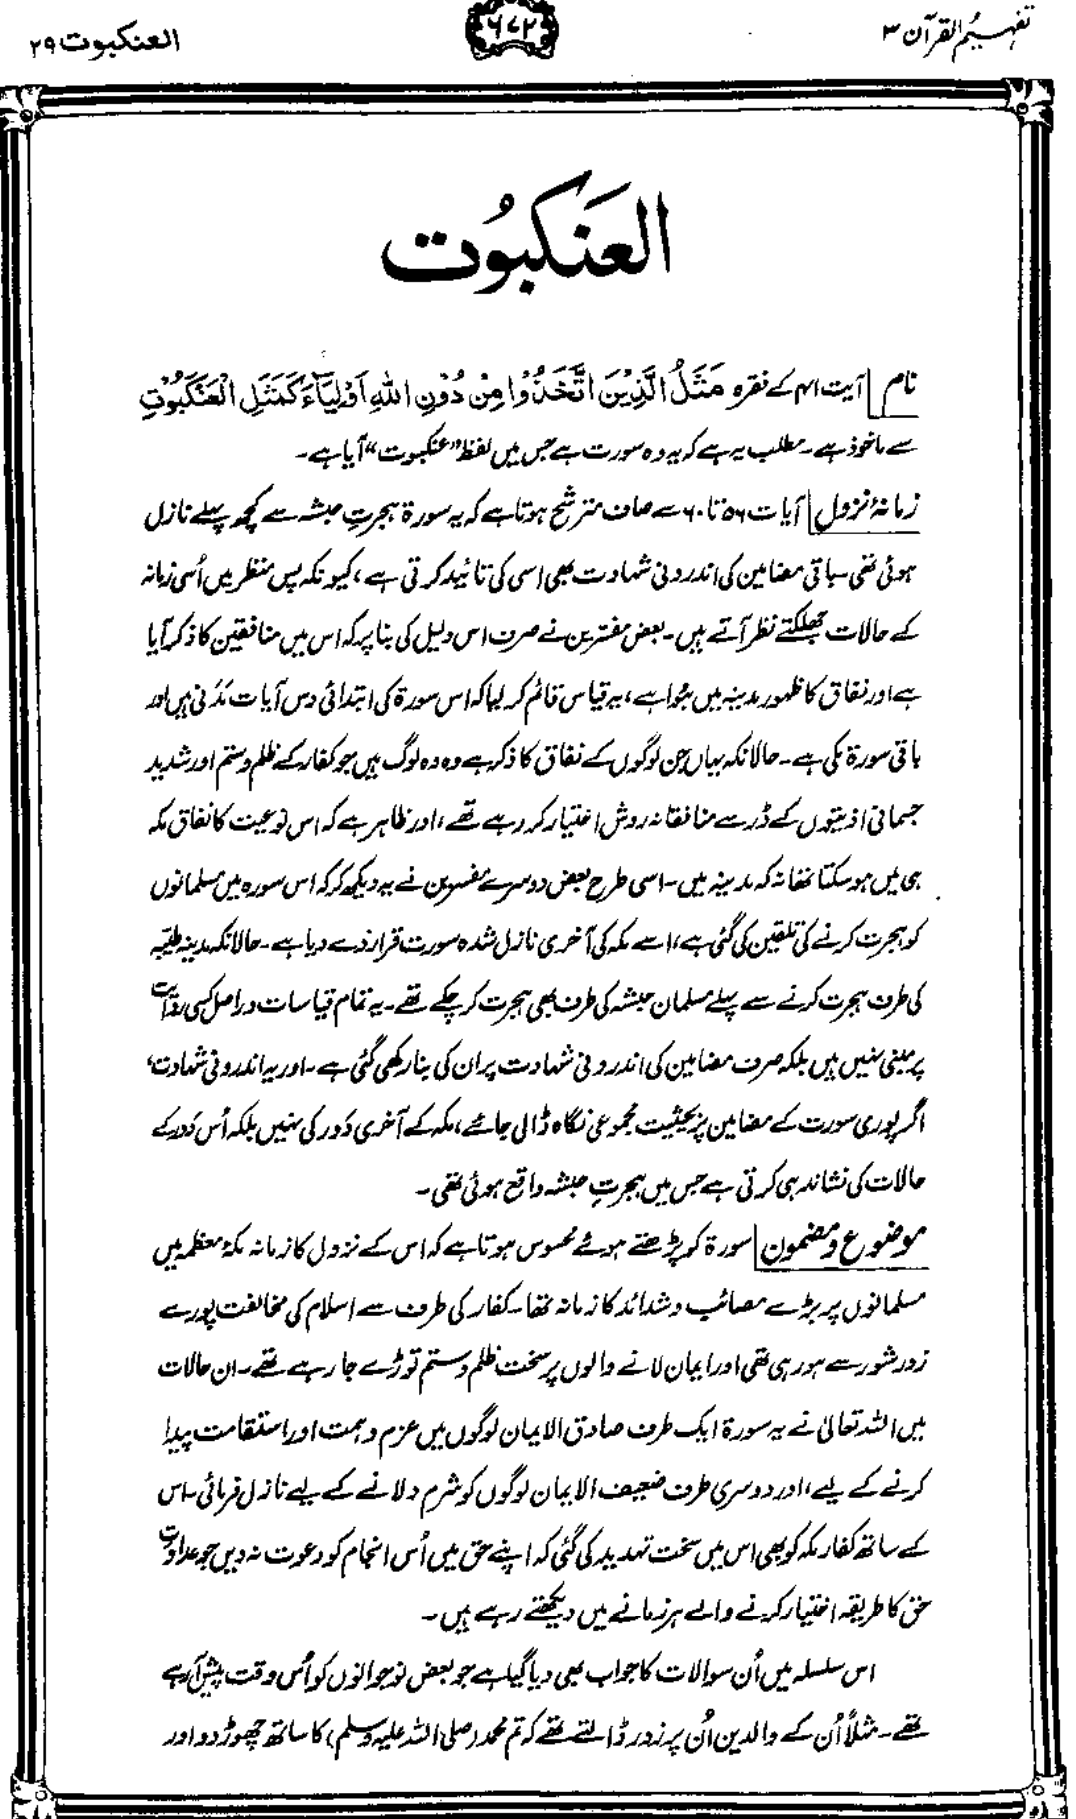 تفہیم القرآن ۳
۶۷۲
العنکبوت ۲۹
العَنکبُوت
نام آیت ۴۱ کے فقرہ مَثَلُ الَّذِیْنَ اتَّخَذُوْا مِنْ دُوْنِ اللّٰهِ اَوْلِیَآءَ کَمَثَلِ الْعَنْکَبُوْتِ
سے ماخوذ ہے۔ مطلب یہ ہے کہ یہ وہ سورت ہے جس میں لفظ ”عنکبوت“ آیا ہے۔
زمانۂ نزول آیات ۵۶ تا ۶۰ سے صاف مترشح ہوتا ہے کہ یہ سورۃ ہجرتِ حبشہ سے کچھ پہلے نازل
ہوئی تھی۔ باقی مضامین کی اندرونی شہادت بھی اسی کی تائید کرتی ہے، کیونکہ پس منظر میں اُسی زمانہ
کے حالات جھلکتے نظر آتے ہیں۔ بعض مفسّرین نے صرف اس دلیل کی بنا پر کہ اس میں منافقین کا ذکر آیا
ہے اور نفاق کا ظہور مدینہ میں ہُوا ہے، یہ قیاس قائم کر لیا کہ اس سورۃ کی ابتدائی دس آیات مَدَنی ہیں اور
باقی سورۃ مکی ہے۔ حالانکہ یہاں جن لوگوں کے نفاق کا ذکر ہے وہ وہ لوگ ہیں جو کفار کے ظلم و ستم اور شدید
جسمانی اذیتوں کے ڈر سے منافقانہ روش اختیار کر رہے تھے، اور ظاہر ہے کہ اس نوعیت کا نفاق مکہ
ہی میں ہو سکتا تھا نہ کہ مدینہ میں۔ اسی طرح بعض دوسرے مفسرین نے یہ دیکھ کر کہ اس سورہ میں مسلمانوں
کو ہجرت کرنے کی تلقین کی گئی ہے، اسے مکہ کی آخری نازل شدہ سورت قرار دے دیا ہے۔ حالانکہ مدینہ طیّبہ
کی طرف ہجرت کرنے سے پہلے مسلمان حبشہ کی طرف بھی ہجرت کر چکے تھے۔ یہ تمام قیاسات دراصل کسی روایت
پر مبنی نہیں ہیں بلکہ صرف مضامین کی اندرونی شہادت پر ان کی بنا رکھی گئی ہے۔ اور یہ اندرونی شہادت،
اگر پوری سورت کے مضامین پر بحیثیت مجموعی نگاہ ڈالی جائے، مکہ کے آخری دَور کی نہیں بلکہ اُس دَور کے
حالات کی نشاندہی کرتی ہے جس میں ہجرتِ حبشہ واقع ہوئی تھی۔
موضوع و مضمون سورۃ کو پڑھتے ہوئے محسوس ہوتا ہے کہ اس کے نزول کا زمانہ مکۂ معظمہ میں
مسلمانوں پر بڑے مصائب و شدائد کا زمانہ تھا۔ کفار کی طرف سے اسلام کی مخالفت پورے
زور شور سے ہو رہی تھی اور ایمان لانے والوں پر سخت ظلم و ستم توڑے جا رہے تھے۔ ان حالات
میں اللہ تعالیٰ نے یہ سورۃ ایک طرف صادق الایمان لوگوں میں عزم و ہمت اور استقامت پیدا
کرنے کے لیے، اور دوسری طرف ضعیف الایمان لوگوں کو شرم دلانے کے لیے نازل فرمائی۔ اس
کے ساتھ کفار مکہ کو بھی اس میں سخت تہدید کی گئی کہ اپنے حق میں اُس انجام کو دعوت نہ دیں جو عداوتِ
حق کا طریقہ اختیار کرنے والے ہر زمانے میں دیکھتے رہے ہیں۔
اس سلسلہ میں اُن سوالات کا جواب بھی دیا گیا ہے جو بعض نوجوانوں کو اُس وقت پیش آ رہے
تھے۔ مثلاً اُن کے والدین اُن پر زور ڈالتے تھے کہ تم محمد (صلی اللہ علیہ وسلم) کا ساتھ چھوڑ دو اور